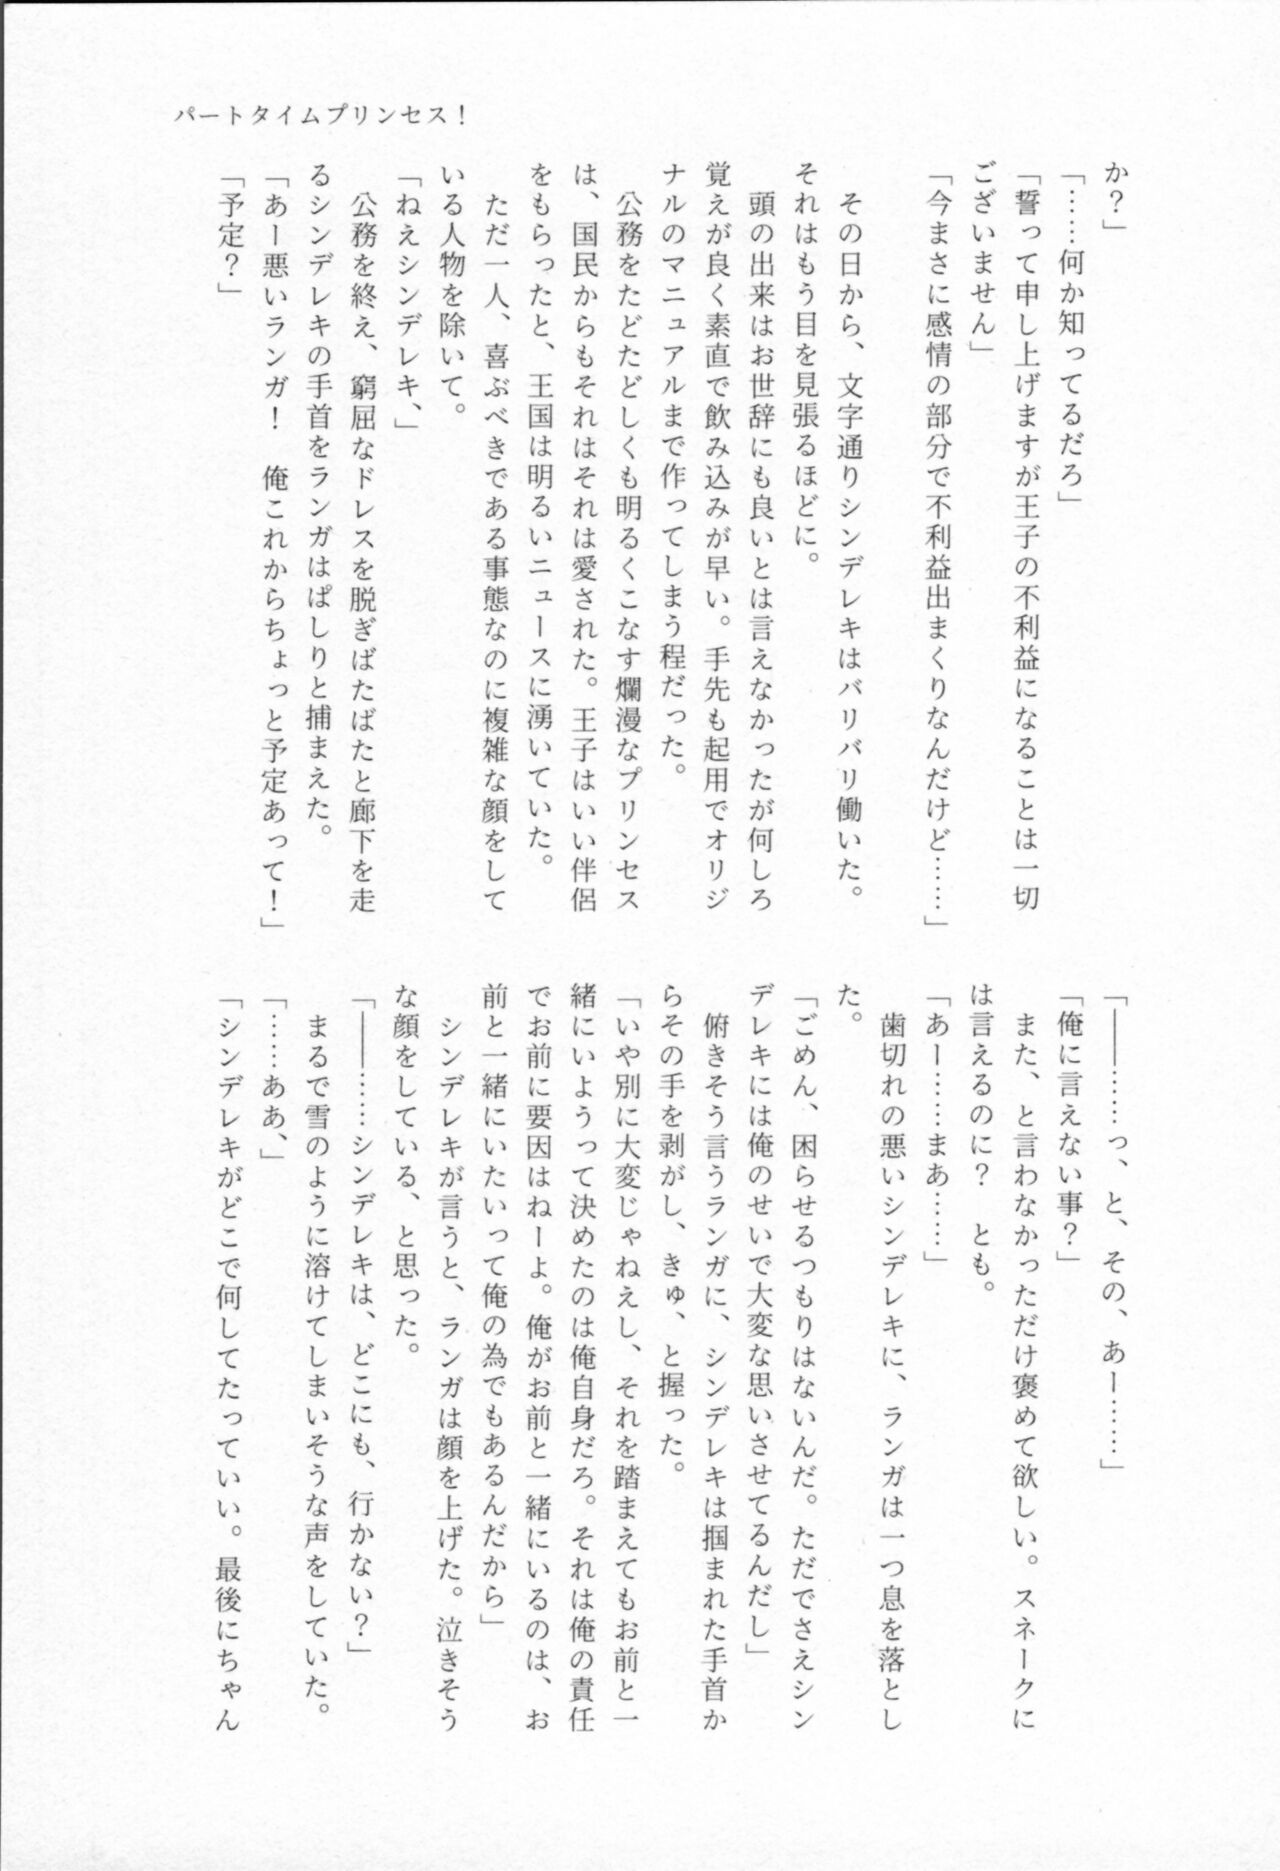 パートタイムプリンセス！
か？」
「……何か知ってるだろ」
「誓って申し上げますが王子の不利益になることは一切
ございません」
「今まさに感情の部分で不利益出まくりなんだけど……」
その日から、文字通りシンデレキはバリバリ働いた。
それはもう目を見張るほどに。
頭の出来はお世辞にも良いとは言えなかったが何しろ
覚えが良く素直で飲み込みが早い。手先も起用でオリジ
ナルのマニュアルまで作ってしまう程だった。
公務をたどたどしくも明るくこなす爛漫なプリンセス
は、国民からもそれはそれは愛された。王子はいい伴侶
をもらったと、王国は明るいニュースに湧いていた。
ただ一人、喜ぶべきである事態なのに複雑な顔をして
いる人物を除いて。
「ねえシンデレキ、」
公務を終え、窮屈なドレスを脱ぎばたばたと廊下を走
るシンデレキの手首をランガはぱしりと捕まえた。
「あー悪いランガ！　俺これからちょっと予定あって！」
「予定？」
「――……っ、と、その、あー……」
「俺に言えない事？」
また、と言わなかっただけ褒めて欲しい。スネークに
は言えるのに？　とも。
「あー……まあ……」
歯切れの悪いシンデレキに、ランガは一つ息を落とし
た。
「ごめん、困らせるつもりはないんだ。ただでさえシン
デレキには俺のせいで大変な思いさせてるんだし」
俯きそう言うランガに、シンデレキは掴まれた手首か
らその手を剥がし、きゅ、と握った。
「いや別に大変じゃねえし、それを踏まえてもお前と一
緒にいようって決めたのは俺自身だろ。それは俺の責任
でお前に要因はねーよ。俺がお前と一緒にいるのは、お
前と一緒にいたいって俺の為でもあるんだから」
シンデレキが言うと、ランガは顔を上げた。泣きそう
な顔をしている、と思った。
「――……シンデレキは、どこにも、行かない？」
まるで雪のように溶けてしまいそうな声をしていた。
「……ああ、」
「シンデレキがどこで何してたっていい。最後にちゃん